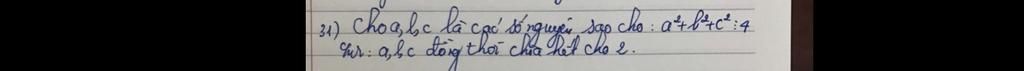 31) Cho a, b, c là các số nguyên sao cho : a²+b²+c² ⋮ 4
CMR: a, b, c đồng thời chia hết cho 2.